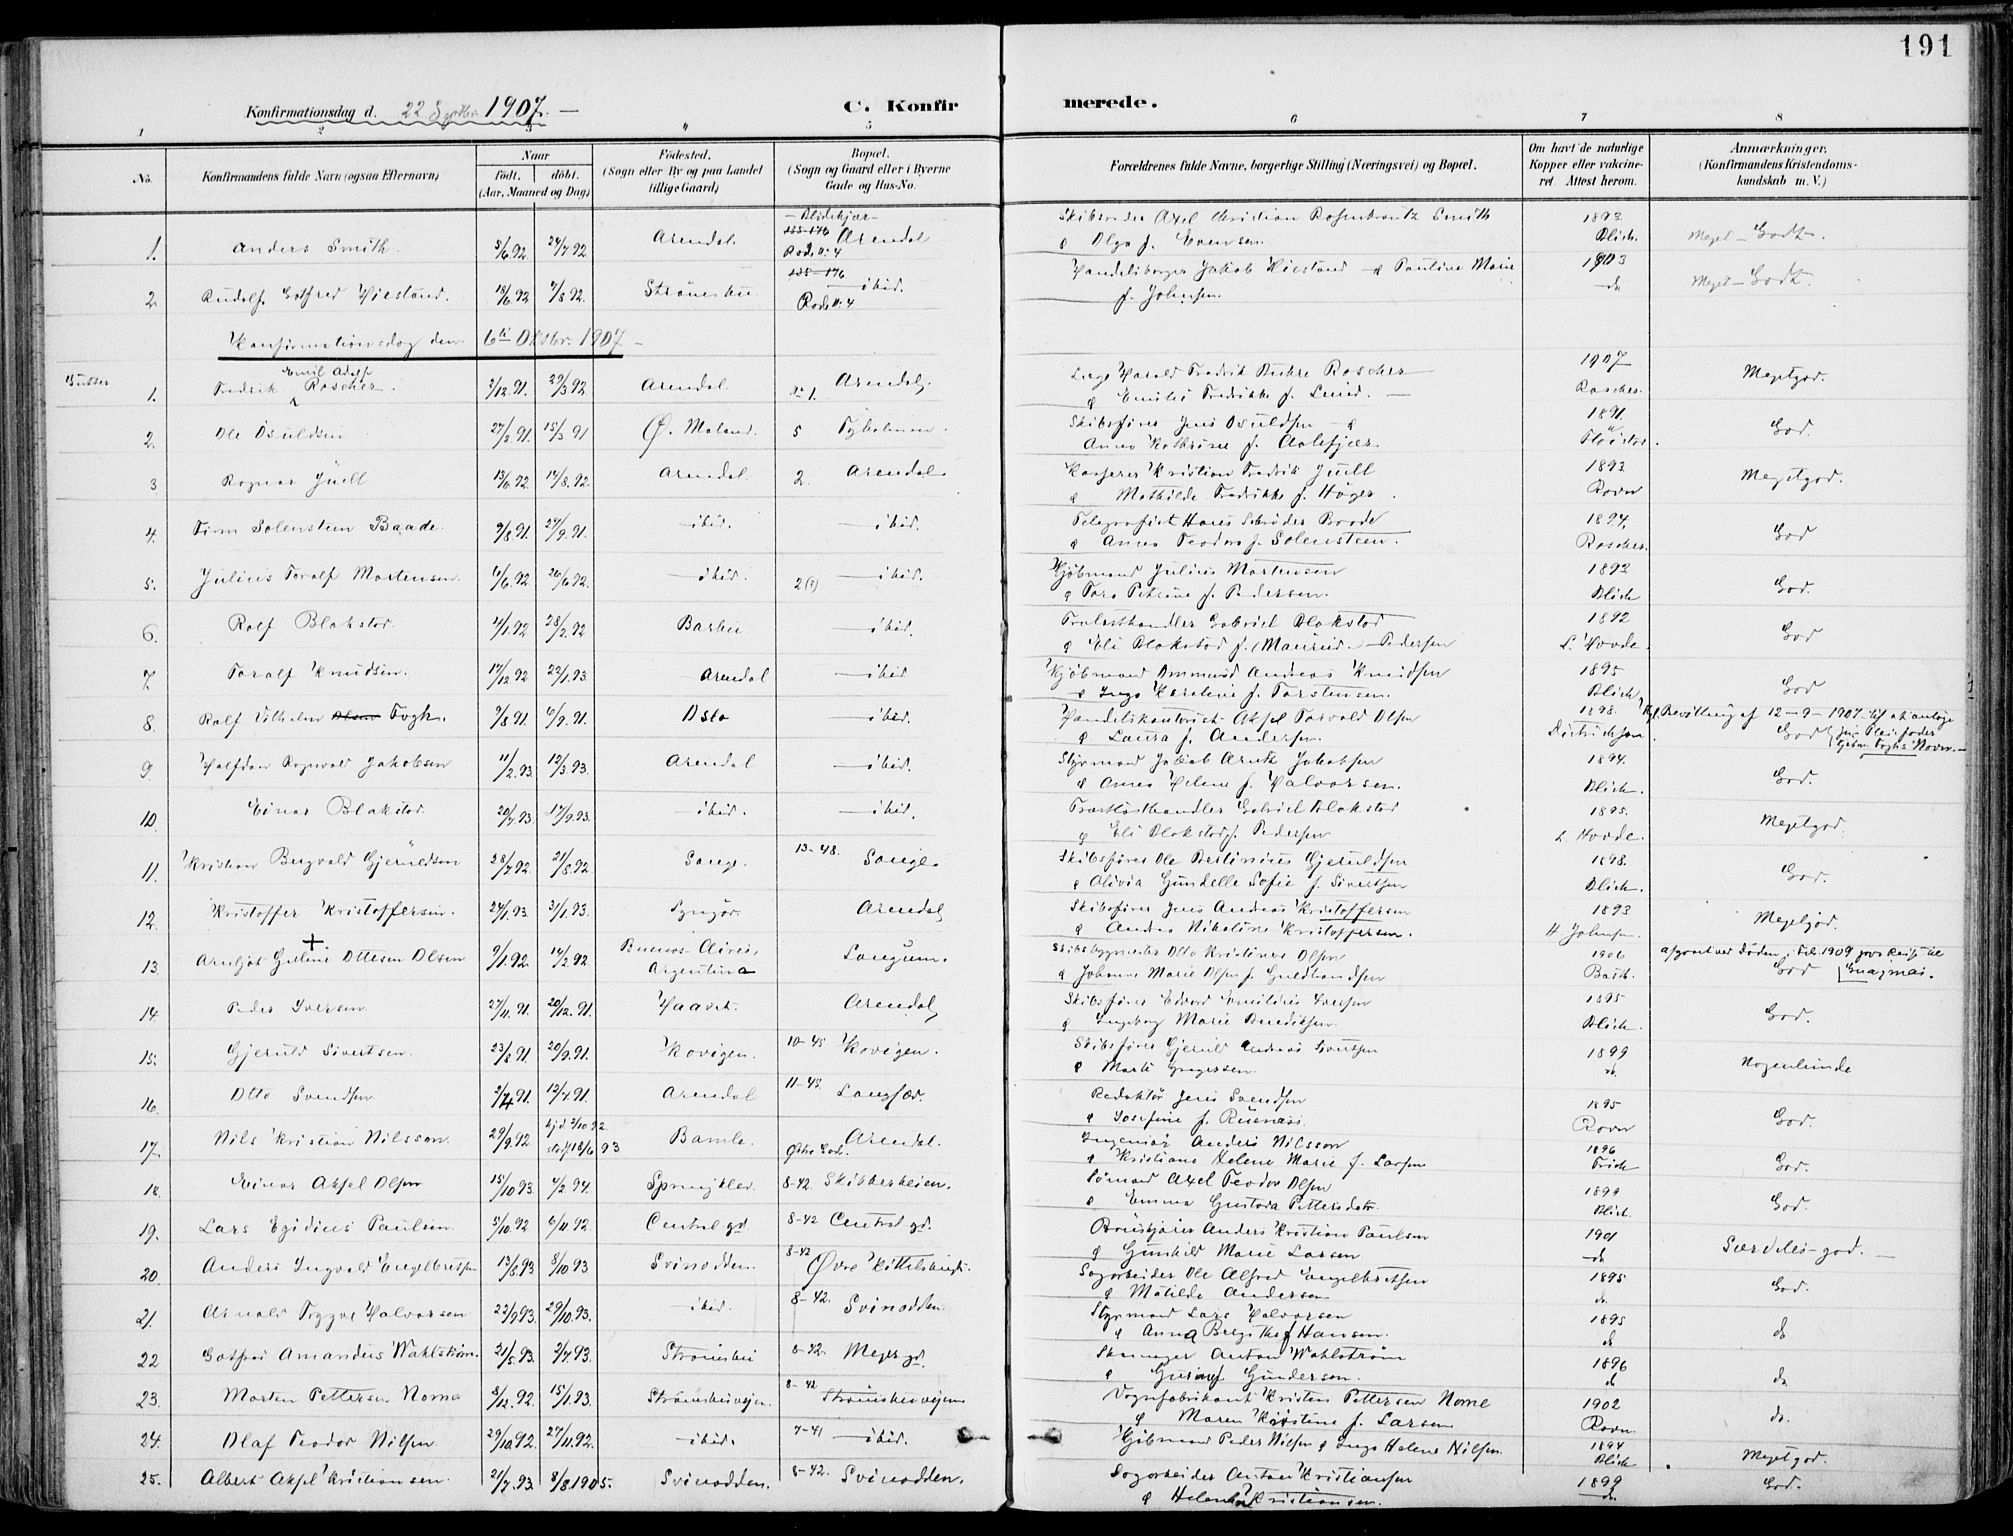 191
Konfirmationsdag d. 22 Septbr 1907. —
C. Konfirmerede.
1 2 3 4 5 6 7 8
No. Konfirmandens fulde Navn (ogsaa Efternavn) Naar født. døbt. (Aar, Maaned og Dag) Fødested. (Sogn eller By og paa Landet tillige Gaard) Bopæl. (Sogn og Gaard eller i Byerne Gade og Hus-No. Forældrenes fulde Navne, borgerlige Stilling (Næringsvei) og Bopæl. Om havt de naturlige Kopper eller vaksineret. Attest herom. Anmærkninger. (Konfirmandens Kristendomskundskab m. V.)
1. Anders Smith. 5/6.92 24/7.92 Arendal. Arendal Rode N: 4 Skibsreder Axel Christian Rosenkrantz Smith
& Olga f. Evensen. 1893 Blich. Meget Godt.
2. Rudolf Gotfred Hiestand. 18/6.92 7/8.92. Strømsbu. ibid. Rode N: 4 Handelsborger Jakob Hiestand & Pauline Marie
f. Johnsen. 1903 do Meget Godt.
Konfirmationsdag den 6te Oktbr. 1907 —
Gutter
1. Fredrik Emil Adolf Roscher. 2/12.91. 29/3.92. Arendal. No 1. Arendal. Læge Harald Fredrik Roscher
& Emilie Fredrikke f. Lund. — 1907 Roscher. Megetgod.
2. Ole Osuldsen 27/2.91. 15/3 91 Ø. Moland. 5 Tyholmen. Skibsfører Jens Osuldsen &
Anne Kathrine f. 1891. God.
3 Ragnar Juell 13/6.92. 14/8.92. Arendal. 2. Arendal. Kasserer Kristian Fredrik Juell
& Mathilde Fredrikke f. Høyer. 1893 Rovn Megetgod.
4. Finn Solensteen Baade. 9/8.91. 27/9.91. ibid. ibid. Telegrafist Hans Schrøder Baade
& Anna Teodora f. Solensteen. 1894. Roscher. God
5. Julius Toralf Mortensen. 6/6.92. 26/6.92. ibid. 2 (?) ibid. Kjøbmand Julius Mortensen
& Tora Petrine f. Pedersen. 1892 Blich God.
6. Rolf Blakstad. 4/1.92 28/2.92 Barbu ibid. Trælasthandler Gabriel Blakstad
& Eli Blakstad f. (Maurud) Pedersen 1892 L. Hovde. God
7. Toralf Knudsen. 17/12.92 22/1.93. Arendal ibid Kjøbmand Ommund Andreas Knudsen
& Inga Karoline f. Torstensen. 1895 Blich God
8. Rolf Vilhelm Olsen Fogh. 7/8.91. 6/9.91. Oslo ibid. Handelskontorist Aksel Torvald Olsen
& Laura f. Andersen. 1893. Didrichsen Kgl. Bevillning af 12-9-1907 til at antage
God sin Pleiefader Fogh's Navn. —
9 Halfdan Ragnvald Jakobsen 11/2.93. 12/3.93. Arendal ibid. Styrmand Jakob Arntz Jakobsen
& Anne Helene f. Halvorsen. 1894. Blich. God.
10. Einar Blakstad. 20/7.93. 17/9.93. ibid. ibid. Trælasthandler Gabriel Blakstad
& Eli Blakstad f. Pedersen 1895. L. Hovde. Megetgod.
11. Kristian Bergvald Gjeruldsen 28/7.92 21/8.92 Songe. 13-48. Songe. Skibsfører Ole Gjeruldsen
& Olivia Gundelle Sofie f. Sivertsen 1898. Blich. God.
12. Kristoffer Kristoffersen. 24/1.93. 31/1.93. Lyngør. Arendal Skibsfører Jens Andreas Kristoffersen
& Andrea Nikoline Kristoffersen. 1893 H. Johnsen. Megetgod.
13. Arnljot Gjeline Ottesen Olsen + 9/1.92. 14/2.92 Buenos-Aires, Argentina Langum. Skibsbygmester Otto Kristines Olsen
& Johanne Marie Olsen f. Guldbrandsen 1906 Barth. afgaaet ved Døden i Feb. 1909 paa Reise til
God Guajmas.
14. Peder Iversen 27/11.91. 20/12.91. Haavet. Arendal Skibsfører Edvard Emilius Iversen
& Ingeborg Marie Bendiksen. 1895 Blich. God.
15. Gjeruld Sivertsen. 23/8.91. 20/9.91. Kovigen. 10-45 Kovigen. Skibsfører Gjeruld Andreas Sivertsen
& Marti Gregersen. 1899 do. Nogenlunde
16. Otto Svendsen 2/4.91. 12/7.91. Arendal 11-48. Langsæd. Redaktør Jens Svendsen
& Josefine f. 1895 Rovn God.
17. Nils Kristian Nilsson 29/9.92. hjd. 2/10 92. stadf. 18/6 93 Bamle. Arendal. Ingeniør Anders Nilsson
& Kristiane Helene Marie f. Larsen 1896 God.
18. Einar Aksel Olsen 15/10.93. 4/2.94. Springkler. 8-42. Skibberheien. Sømand Axel Teodor Olsen
& Emma Gustava Pettersdtr. 1899 Blich. God.
19. Lars Egidius Paulsen. 5/10.92 6/11.92. Central gd. 8-42 Central gd. Anders Kristian Paulsen
& Gunhild Marie Larsen 1901 do Særdeles-god. —
20. Anders Ingvald Engelbretsen 13/8.93 8/10 93 Svinodden. 8-42 Øvre Kittelsbugt. Sagarbeider Ole Alfred Engelbretsen
& Matilde Andersen 1895 do. God.
21. Arnold Trygve Halvorsen 22/9.93. 29/10.93. ibid. 8-42. Svinodden. Styrmand Lars Halvorsen
& Anna Bergithe f Hansen. 1895 do do
22 Gotfred Amandus Wahlstrøm. 21/5.93. 2/7.93. Strømsbu 8-42. Meyer gd. Skomager Anton Wahlstrøm
& Gurine f Gundersen. 1896 do do.
23. Morten Pettersen Norne 3/12.92. 15/1.93. Strømsbuvejen. 8-42 Strømsbuvejen Vognfabrikant Kristen Pettersen Norne
& Maren Kristine f. Larsen 1902 Rovn. do.
24. Olaf Teodor Nilsen 29/10.92. 27/11.92. ibid. 7-41 ibid. Kjøbmand Peder Nilsen & Inga Helene Nilsen. 1894 Blich Megetgod.
25. Albert Aksel Kristiansen. 21/7.93. 8/8.1905. Svinodden. 8-42. Svinodden. Sagarbeider Anton Kristiansen
& Helene Kristiansen. 1899 do. God.